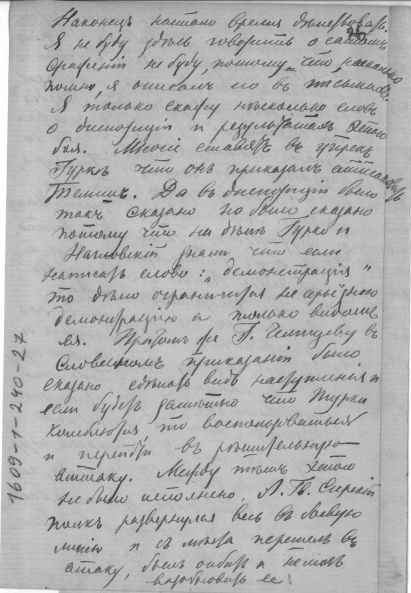 Наконецъ настало время дѣйствовать.
Я не буду здѣсь говорить о самомъ
сраженіи не буду, потому что насколько
помню, я описалъ его въ письмахъ.
Я только скажу нѣсколько словъ
о диспозиціи и результатахъ этого
боя. Многіе ставятъ въ упрекъ
Гурко что онъ приказалъ атаковать
Телишъ. Да въ диспозиціи было
такъ сказано но было сказано
потому что Гурко и
Нагловскій знали что если
написать слово: „демонстрація"
то дѣло ограничится не серьезною
демонстраціею а только видомъ
ея. Притомъ же П. Челищеву въ
словесномъ приказаніи было
сказано сдѣлать видъ наступленія и
если будетъ замѣтно что Турки
колеблются то воспользоваться
и перейти въ рѣшительную
аттаку. Между тѣмъ этого
не было исполнено. Л. Гв. Егерскій
полкъ развернулся весь въ боевую
линію и съ мѣста перешелъ въ
атаку, былъ отбитъ и не могъ
возобновить ее.
1609-1-240-27